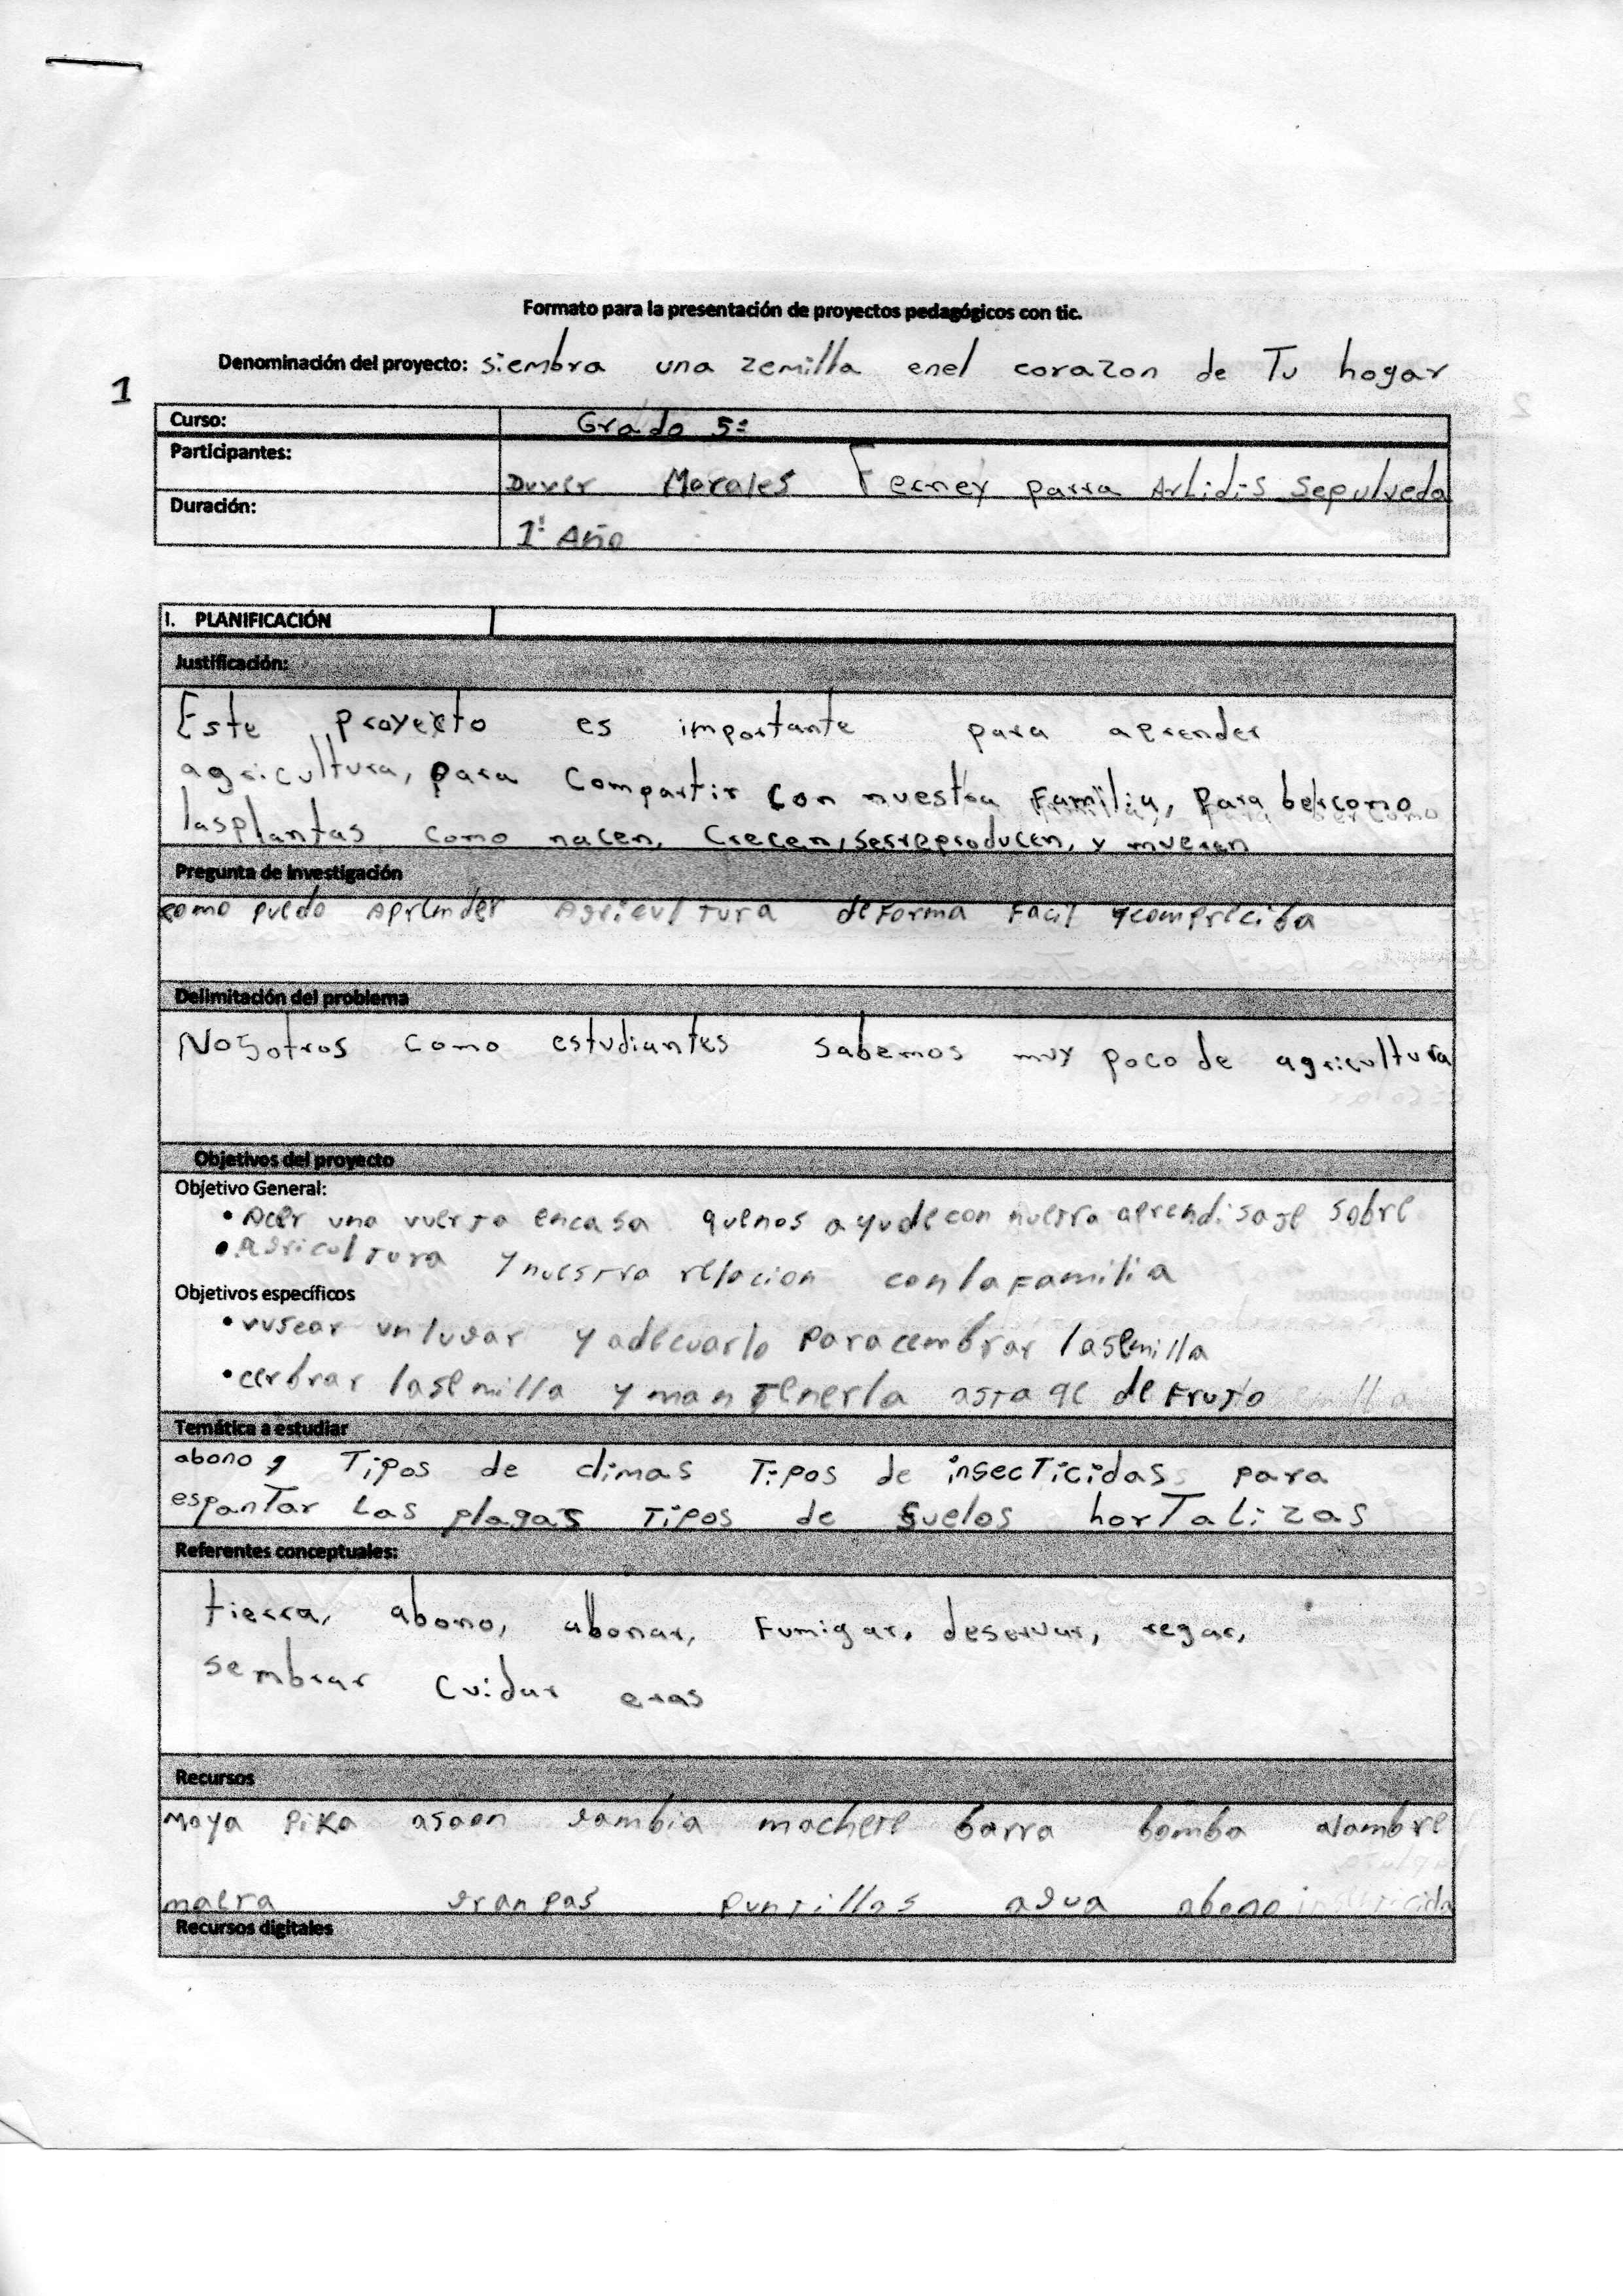 Formato para la presentación de proyectos pedagógicos con tic.
Denominación del proyecto: siembra una zemilla enel corazon de Tu hogar
1
Curso: Grado 5º
Participantes: Duver Morales Ferney parra Arlidis Sepulveda
Duración: 1! Año
I. PLANIFICACIÓN
Justificación:
Este proyecto es importante para aprender
agricultura, para compartir con nuestra familia, para ber como
lasplantas como nacen, crecen, sesrreproducen, y mueren
Pregunta de investigación
como puedo Aprender Agricultura deforma facil ycompreciba
Delimitación del problema
Nosotros como estudiantes sabemos muy poco de agricultura
Objetivos del proyecto
Objetivo General:
• Acer una vuerta encasa quenos ayude con nuestra aprendisaje sobre
• Agricultura y nuestra relacion con la familia
Objetivos específicos
• vuscar unlugar y adecuarlo paracembrar lasemilla
• cembrar lasemilla y mantenerla asta qe de Fruto
Temática a estudiar
abono, Tipos de climas Tipos de insecTicidas para
espanTar Las plagas Tipos de suelos horTaLizas
Referentes conceptuales:
tierra, abono, abonar, Fumigar, deservar, regar,
sembrar cuidar eras
Recursos
Moya piKa asaon gambia machete barra bomba alambre
maera granpas puntillas agua abono insecticida
Recursos digitales